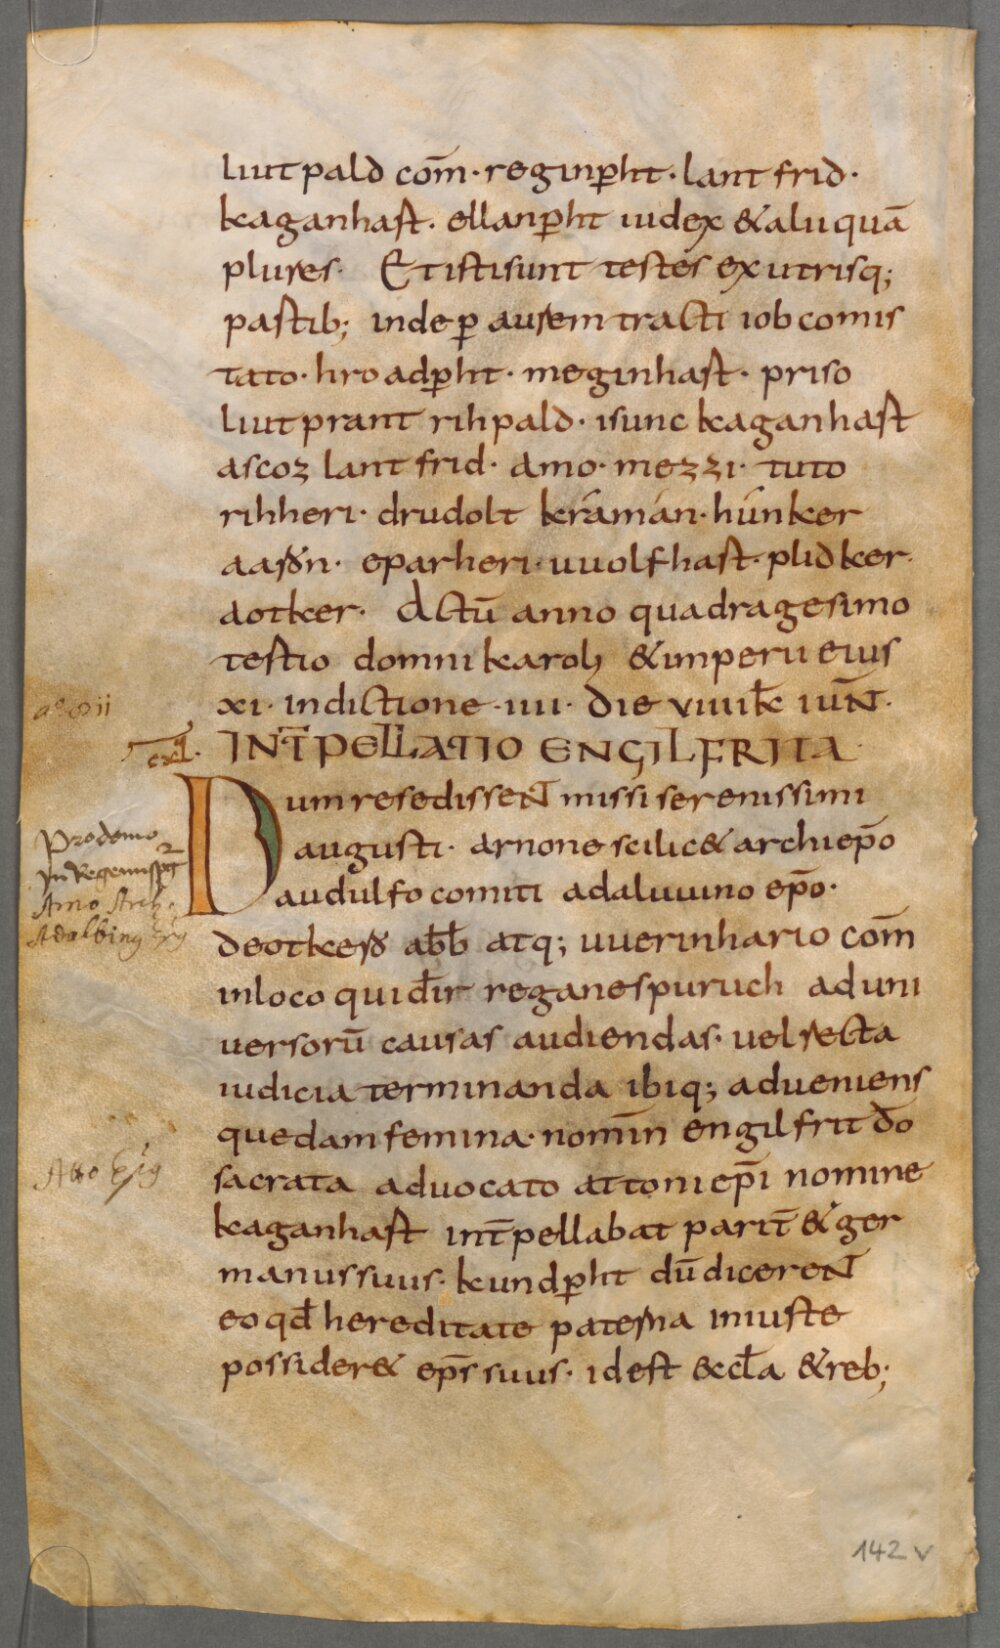 liutpald com̄· reginp̄ht· lantfrid·
kaganhast· ellanp̄ht iudex & alii quā
plures· Et isti sunt testes ex utrisq;
partib; inde p̄ aurem tracti iob comis
tato· hroadp̄ht· meginhart· priso
liutprant rihpald· isunc kaganhart
ascoz lantfrid· amo· mezzi· tuto
rihheri· drudolt kraman· hunker
aarōn· eparheri· uuolfhart· plidker·
aotker· Actū anno quadragesimo
tertio domni karoli & imperii eius
xi· indictione ·iiii· die viiii kl̄ iuN̄·
INT̄PELLATIO ENGILFRITA
Dum resedisseNT missi serenissimi
augusti· arnone scilic& archiep̄o
audulfo comiti adaluuino ep̄o·
deotkero abb̄ atq; uuerinhario com̄
in loco qui dr̄ reganespuruch ad uni
uersorū causas audiendas· uel recta
iudicia terminanda ibiq; adueniens
quedam femina· nomin̄ engilfrit dō
sacrata aduocato attoni ep̄i nomine
kaganhart int̄pellabat parit̄ & ger
manus suus· kundp̄ht dū dicereNT
eo qd̄ hereditate paterna iniuste
possider& ep̄s suus· id est &ccl̄a & reb;
Pro domo
In Regenuspg
Arno Arch.
Adalbing Ep̄g
Atto Ep̄g
142 v